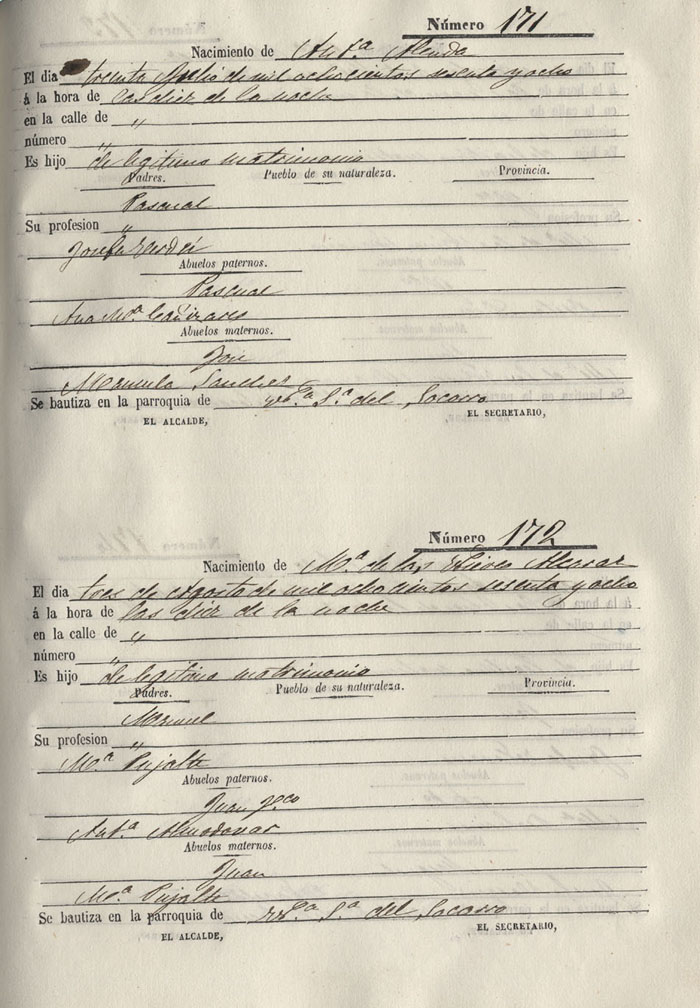 Número 171
Nacimiento de Antª Alenda
El dia treinta Julio de mil ochocientos sesenta y ocho
á la hora de las diez de la noche
en la calle de "
número "
Es hijo de legitimo matrimonio
Padres. Pueblo de su naturaleza. Provincia.
Pascual
Su profesion "
Josefa Verdú
Abuelos paternos.
Pascual
Ana Mª Cañizares
Abuelos maternos.
José
Manuela Sanchez
Se bautiza en la parroquia de Sª del Socorro
EL ALCALDE, EL SECRETARIO,
Número 172
Nacimiento de Mª de las Nieves Alcaraz
El dia tres de Agosto de mil ochocientos sesenta y ocho
á la hora de las diez de la noche
en la calle de "
número "
Es hijo de legitimo matrimonio
Padres. Pueblo de su naturaleza. Provincia.
Manuel
Su profesion "
Mª Pujalte
Abuelos paternos.
Juan Fco
Antª Almodovar
Abuelos maternos.
Juan
Mª Pujalte
Se bautiza en la parroquia de Sª del Socorro
EL ALCALDE, EL SECRETARIO,